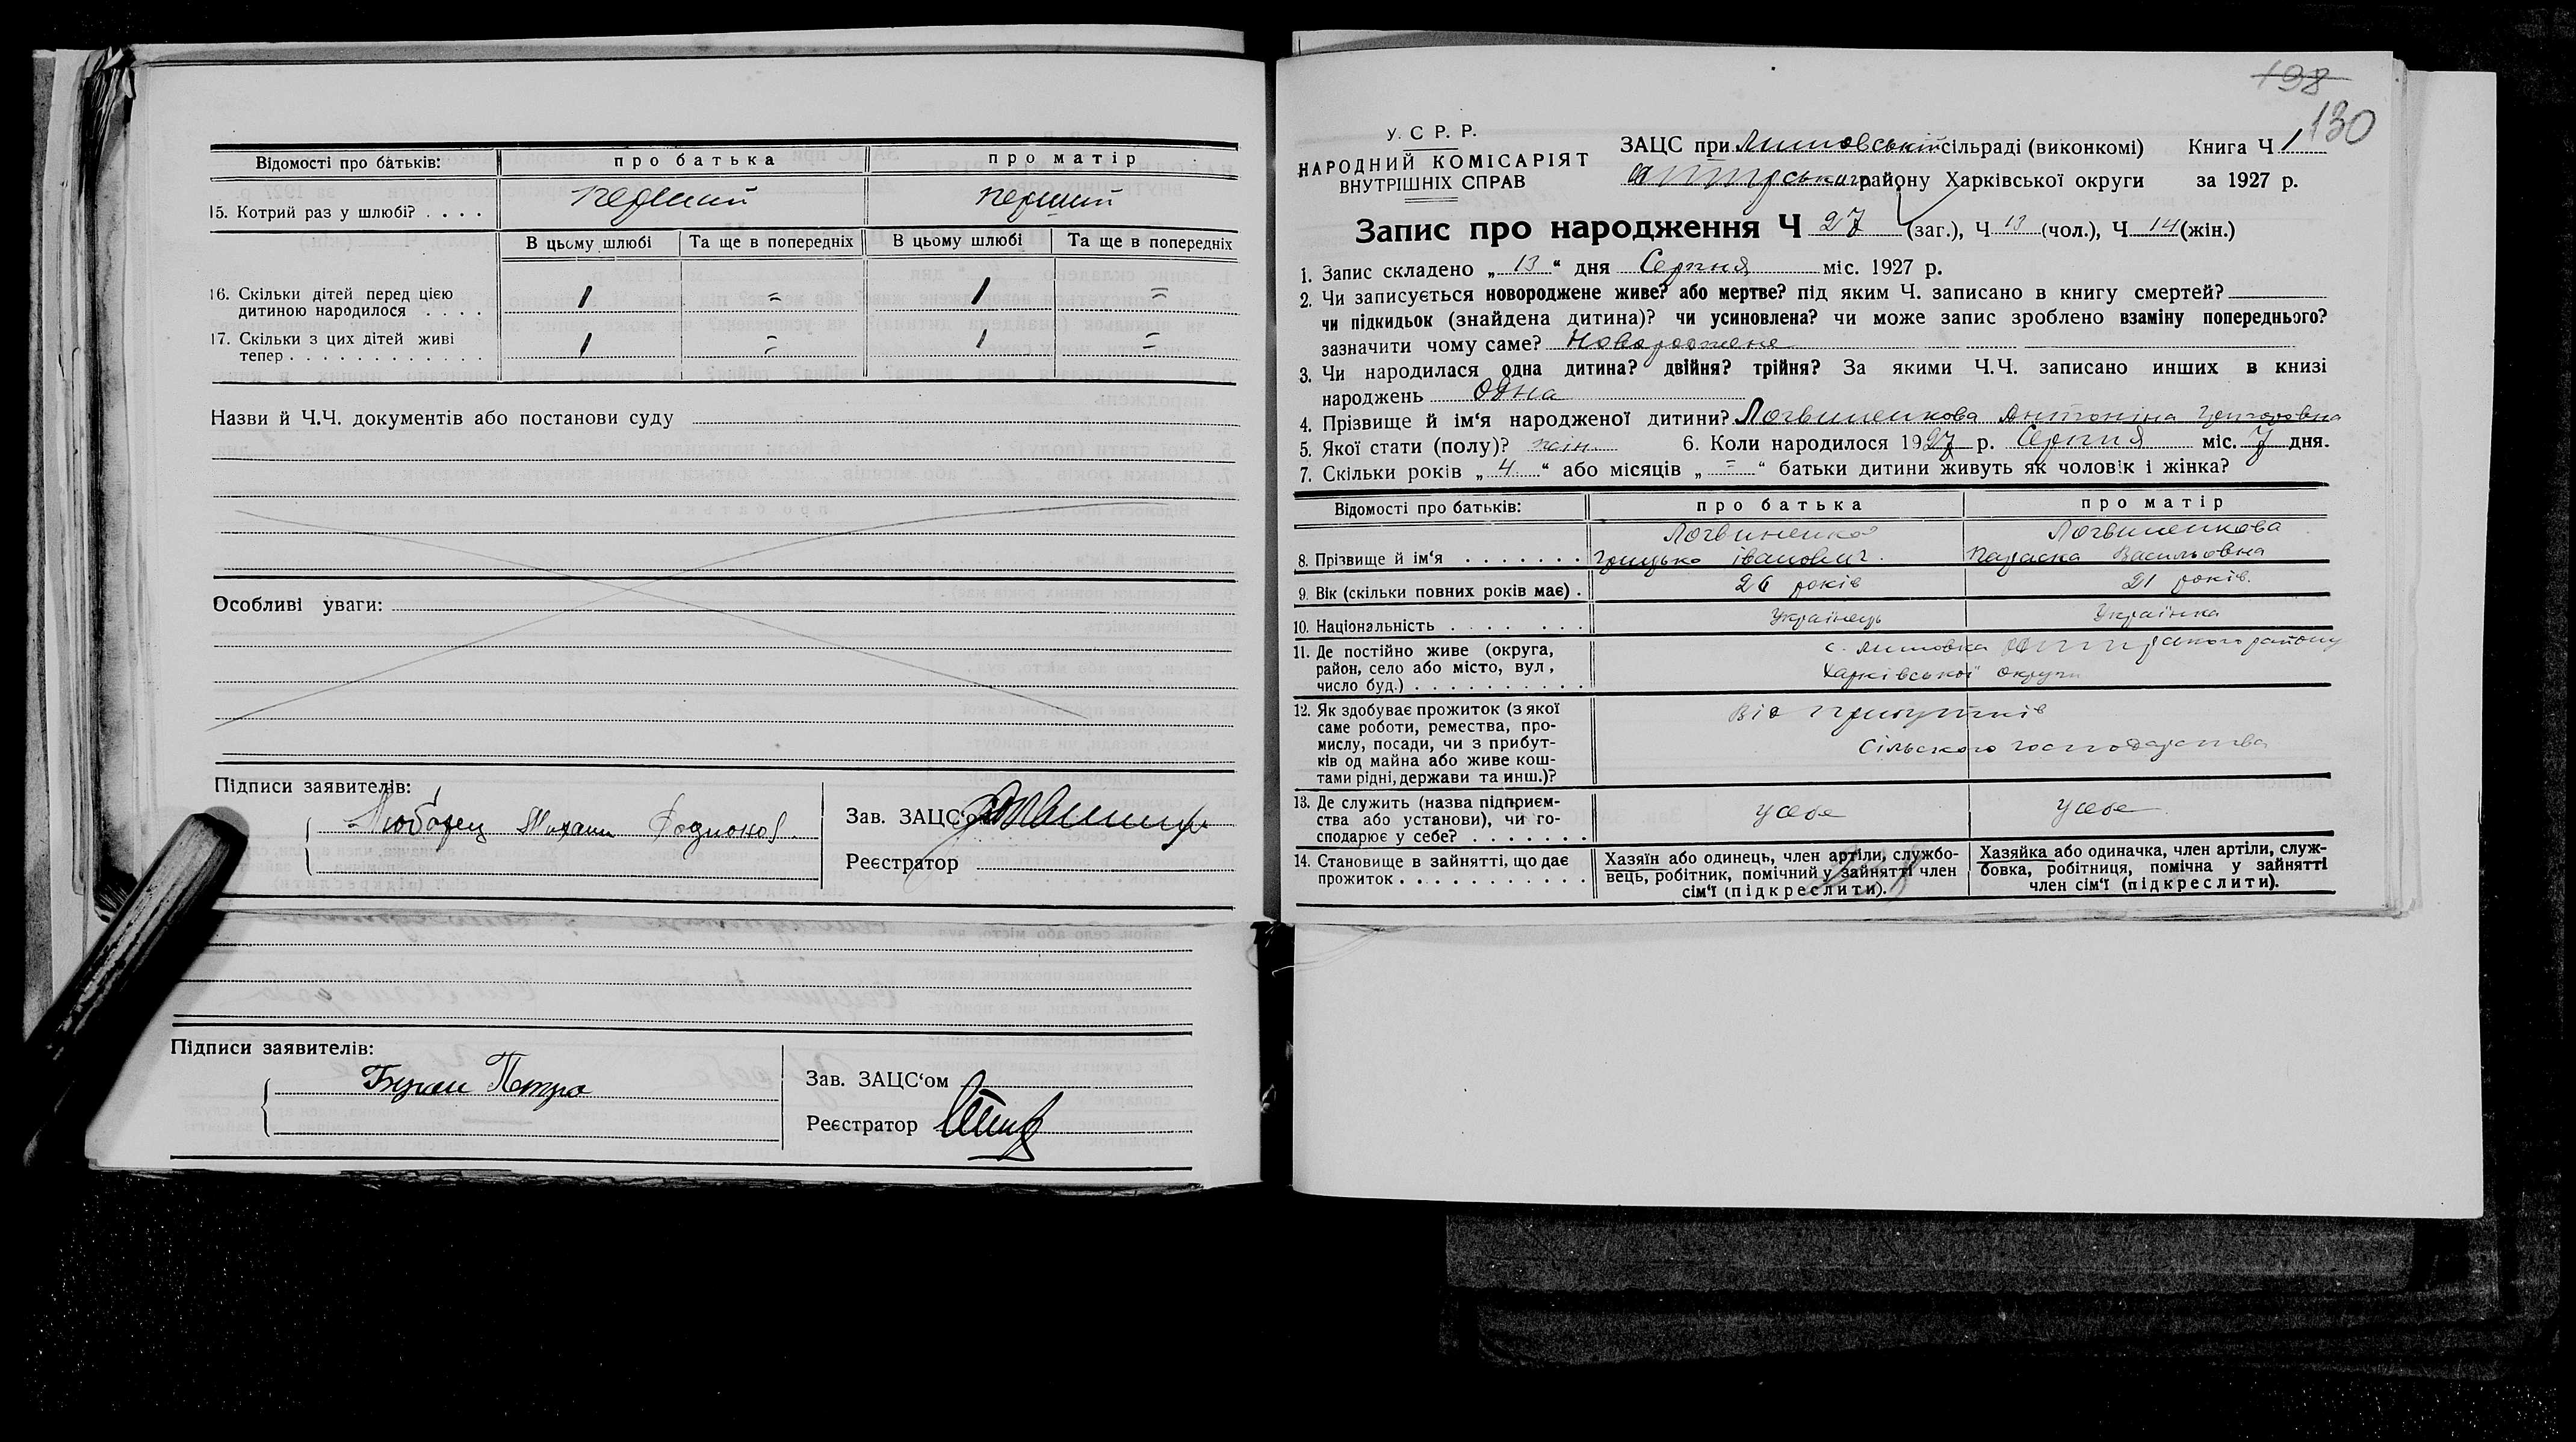 Відомості про батьків: про батька про матір
15. Котрий раз у шлюбі? . . . . перший перший
В цьому шлюбі Та ще в попередніх В цьому шлюбі Та ще в попередніх
16. Скільки дітей перед цією
дитиною народилося . . . . 1 = 1 =
17. Скільки з цих дітей живі
тепер . . . . . . . . . . . . 1 = 1 =
Назви й Ч.Ч. документів або постанови суду
Особливі уваги:
Підписи заявителів:
Любарец Михаил Родионов.
Зав. ЗАЦС‘ом
Реєстратор
Підписи заявителів:
Петро
Зав. ЗАЦС‘ом
Реєстратор
198
130
У. С Р. Р.
НАРОДНИЙ КОМІСАРІЯТ
ВНУТРІШНІХ СПРАВ
ЗАЦС при сільраді (виконкомі) Книга Ч 1
району Харківської округи за 1927 р.
Запис про народження Ч 27 (заг.), Ч 13 (чол.), Ч 14 (жін.)
1. Запис складено „ 13 “ дня Серпня міс. 1927 р.
2. Чи записується новороджене живе? або мертве? під яким Ч. записано в книгу смертей?
чи підкидьок (знайдена дитина)? чи усиновлена? чи може запис зроблено взаміну попереднього?
зазначити чому саме? Новорожене
3. Чи народилася одна дитина? двійня? трійня? За якими Ч.Ч. записано инших в книзі
народжень одна
4. Прізвище й ім‘я народженої дитини? Логвиненкова Антоніна Григоровна
5. Якої стати (полу)? жін. 6. Коли народилося 1927 р. Серпня міс. 7 дня.
7. Скільки років „ 4 “ або місяців „ = “ батьки дитини живуть як чоловік і жінка?
Відомості про батьків: про батька про матір
Логвиненко Логвиненкова
8. Прізвище й ім‘я . . . . . . . Грицько Іванович. Параска Васильовна
9. Вік (скільки повних років має) . 26 років 21 років.
10. Національність . . . . . . . Українець Українка
11. Де постійно живе (округа, с. району
район, село або місто, вул, Харківської округи
число буд.) . . . . . . . . . .
12. Як здобуває прожиток (з якої від прибутків
саме роботи, ремества, про-
мислу, посади, чи з прибут- сільського господарства
ків од майна або живе кош-
тами рідні, держави та инш.)?
13. Де служить (назва підприєм- у себе у себе
ства або установи), чи го-
сподарює у себе? . . . . . . .
14. Становище в зайнятті, що дає Хазяїн або одинець, член артіли, службо- Хазяйка або одиначка, член артіли, служ-
прожиток . . . . . . . . . . . вець, робітник, помічний у зайнятті член бовка, робітниця, помічна у зайнятті
сім‘ї (підкреслити). член сім‘ї (підкреслити).